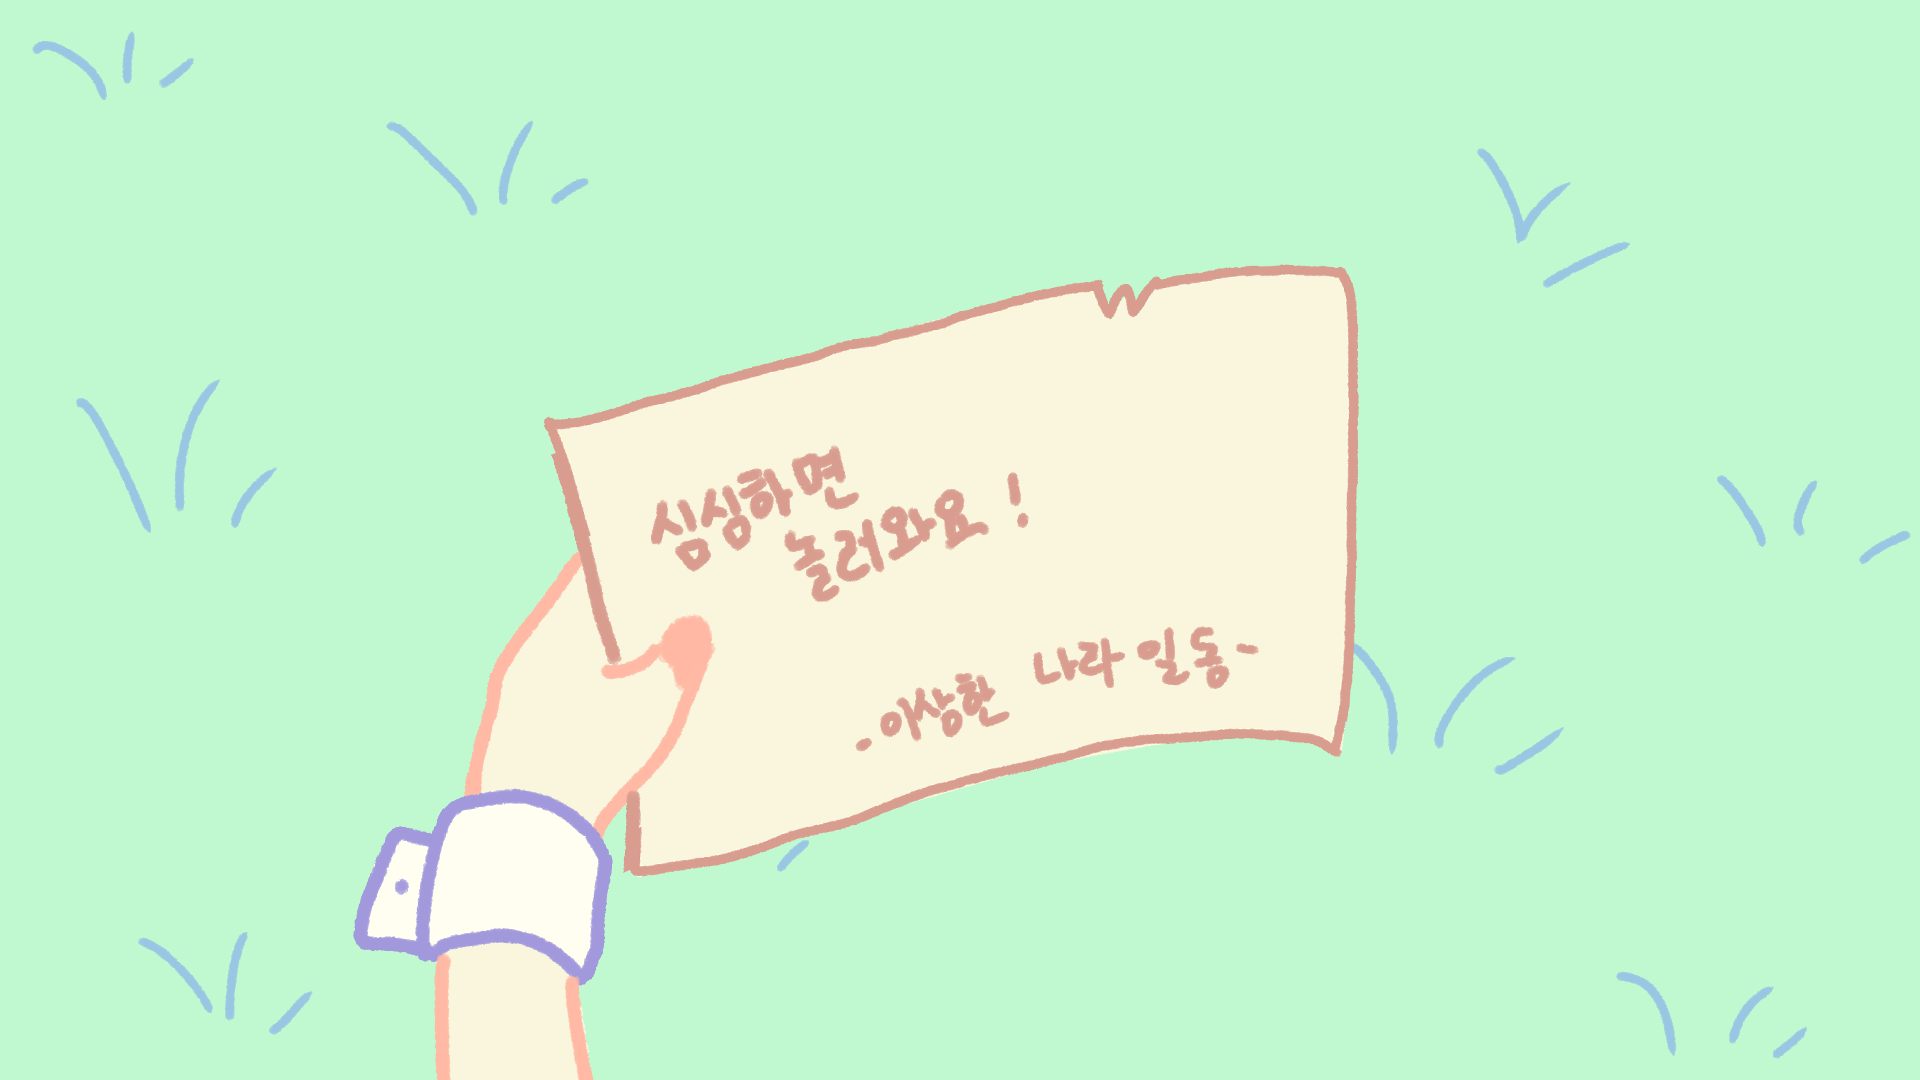 심심하면
놀러와요!
.이상한 나라 일동~